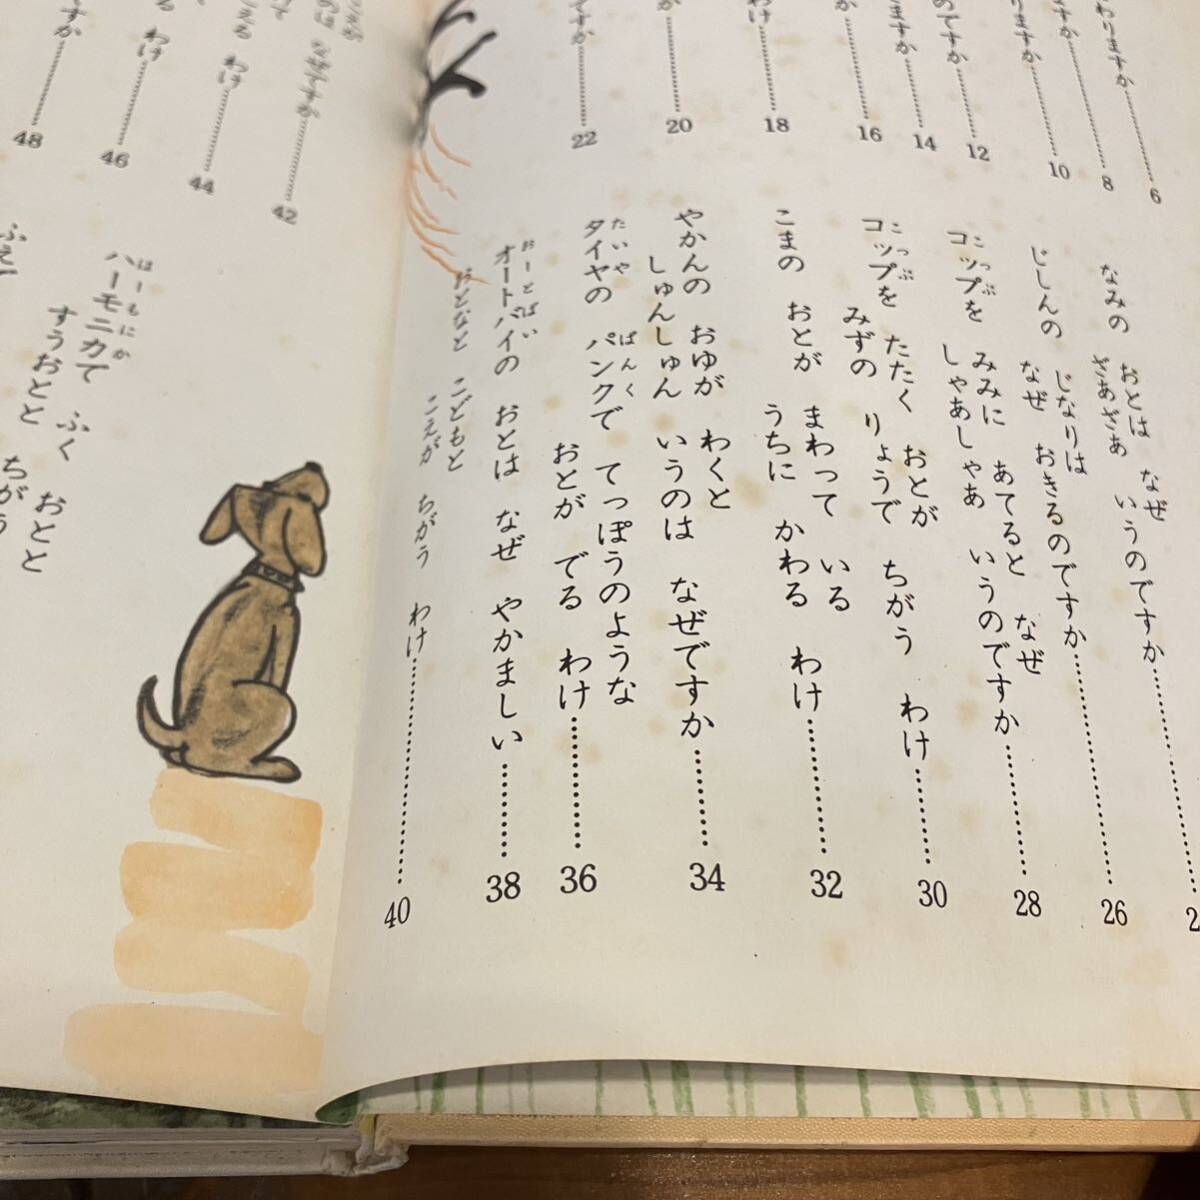 わりますか……6
ますか……8
りますか……10
のですか……12
ますか……14
か……16
わけ……18
か……20
ですか……22
なみの おとは なぜ
ざあざあ いうのですか……2
じしんの じなりは
なぜ おきるのですか……26
コップを みみに あてると なぜ
しゃあしゃあ いうのですか……28
コップを たたく おとが
みずの りょうで ちがう わけ……30
こまの おとが まわって いる
うちに かわる わけ……32
やかんの おゆが わくと
しゅんしゅん いうのは なぜですか……34
タイヤの パンクで てっぽうのような
おとが でる わけ……36
オートバイの おとは なぜ やかましい……38
おとなと こどもと
こえが ちがう わけ……40
のは なぜですか……42
こえる わけ……44
る わけ……46
ですか……48
ハーモニカで ふく おとと
すうおとと ちがう
ふえ